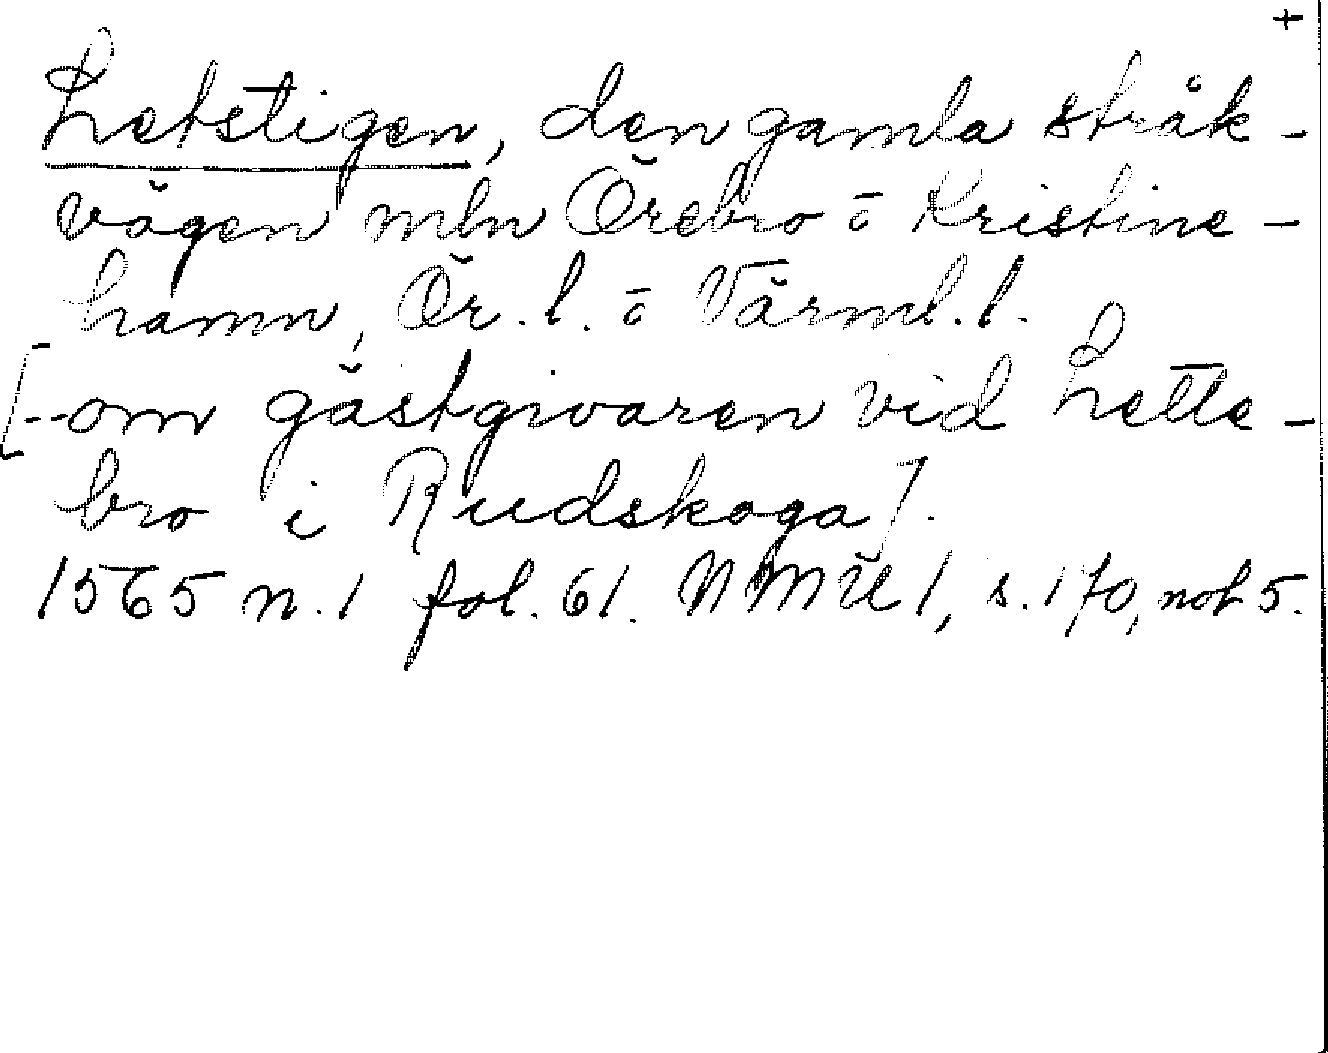 +
Letstigen, den gamla stråk-
vägen mln Örebro o Kristine-
hamn, Ör. l. o Värml. l.
[--om gästgivaren vid Lette-
bro i Rudskoga].
1565 n. 1 fol. 61. NMU 1, s. 170, not 5.